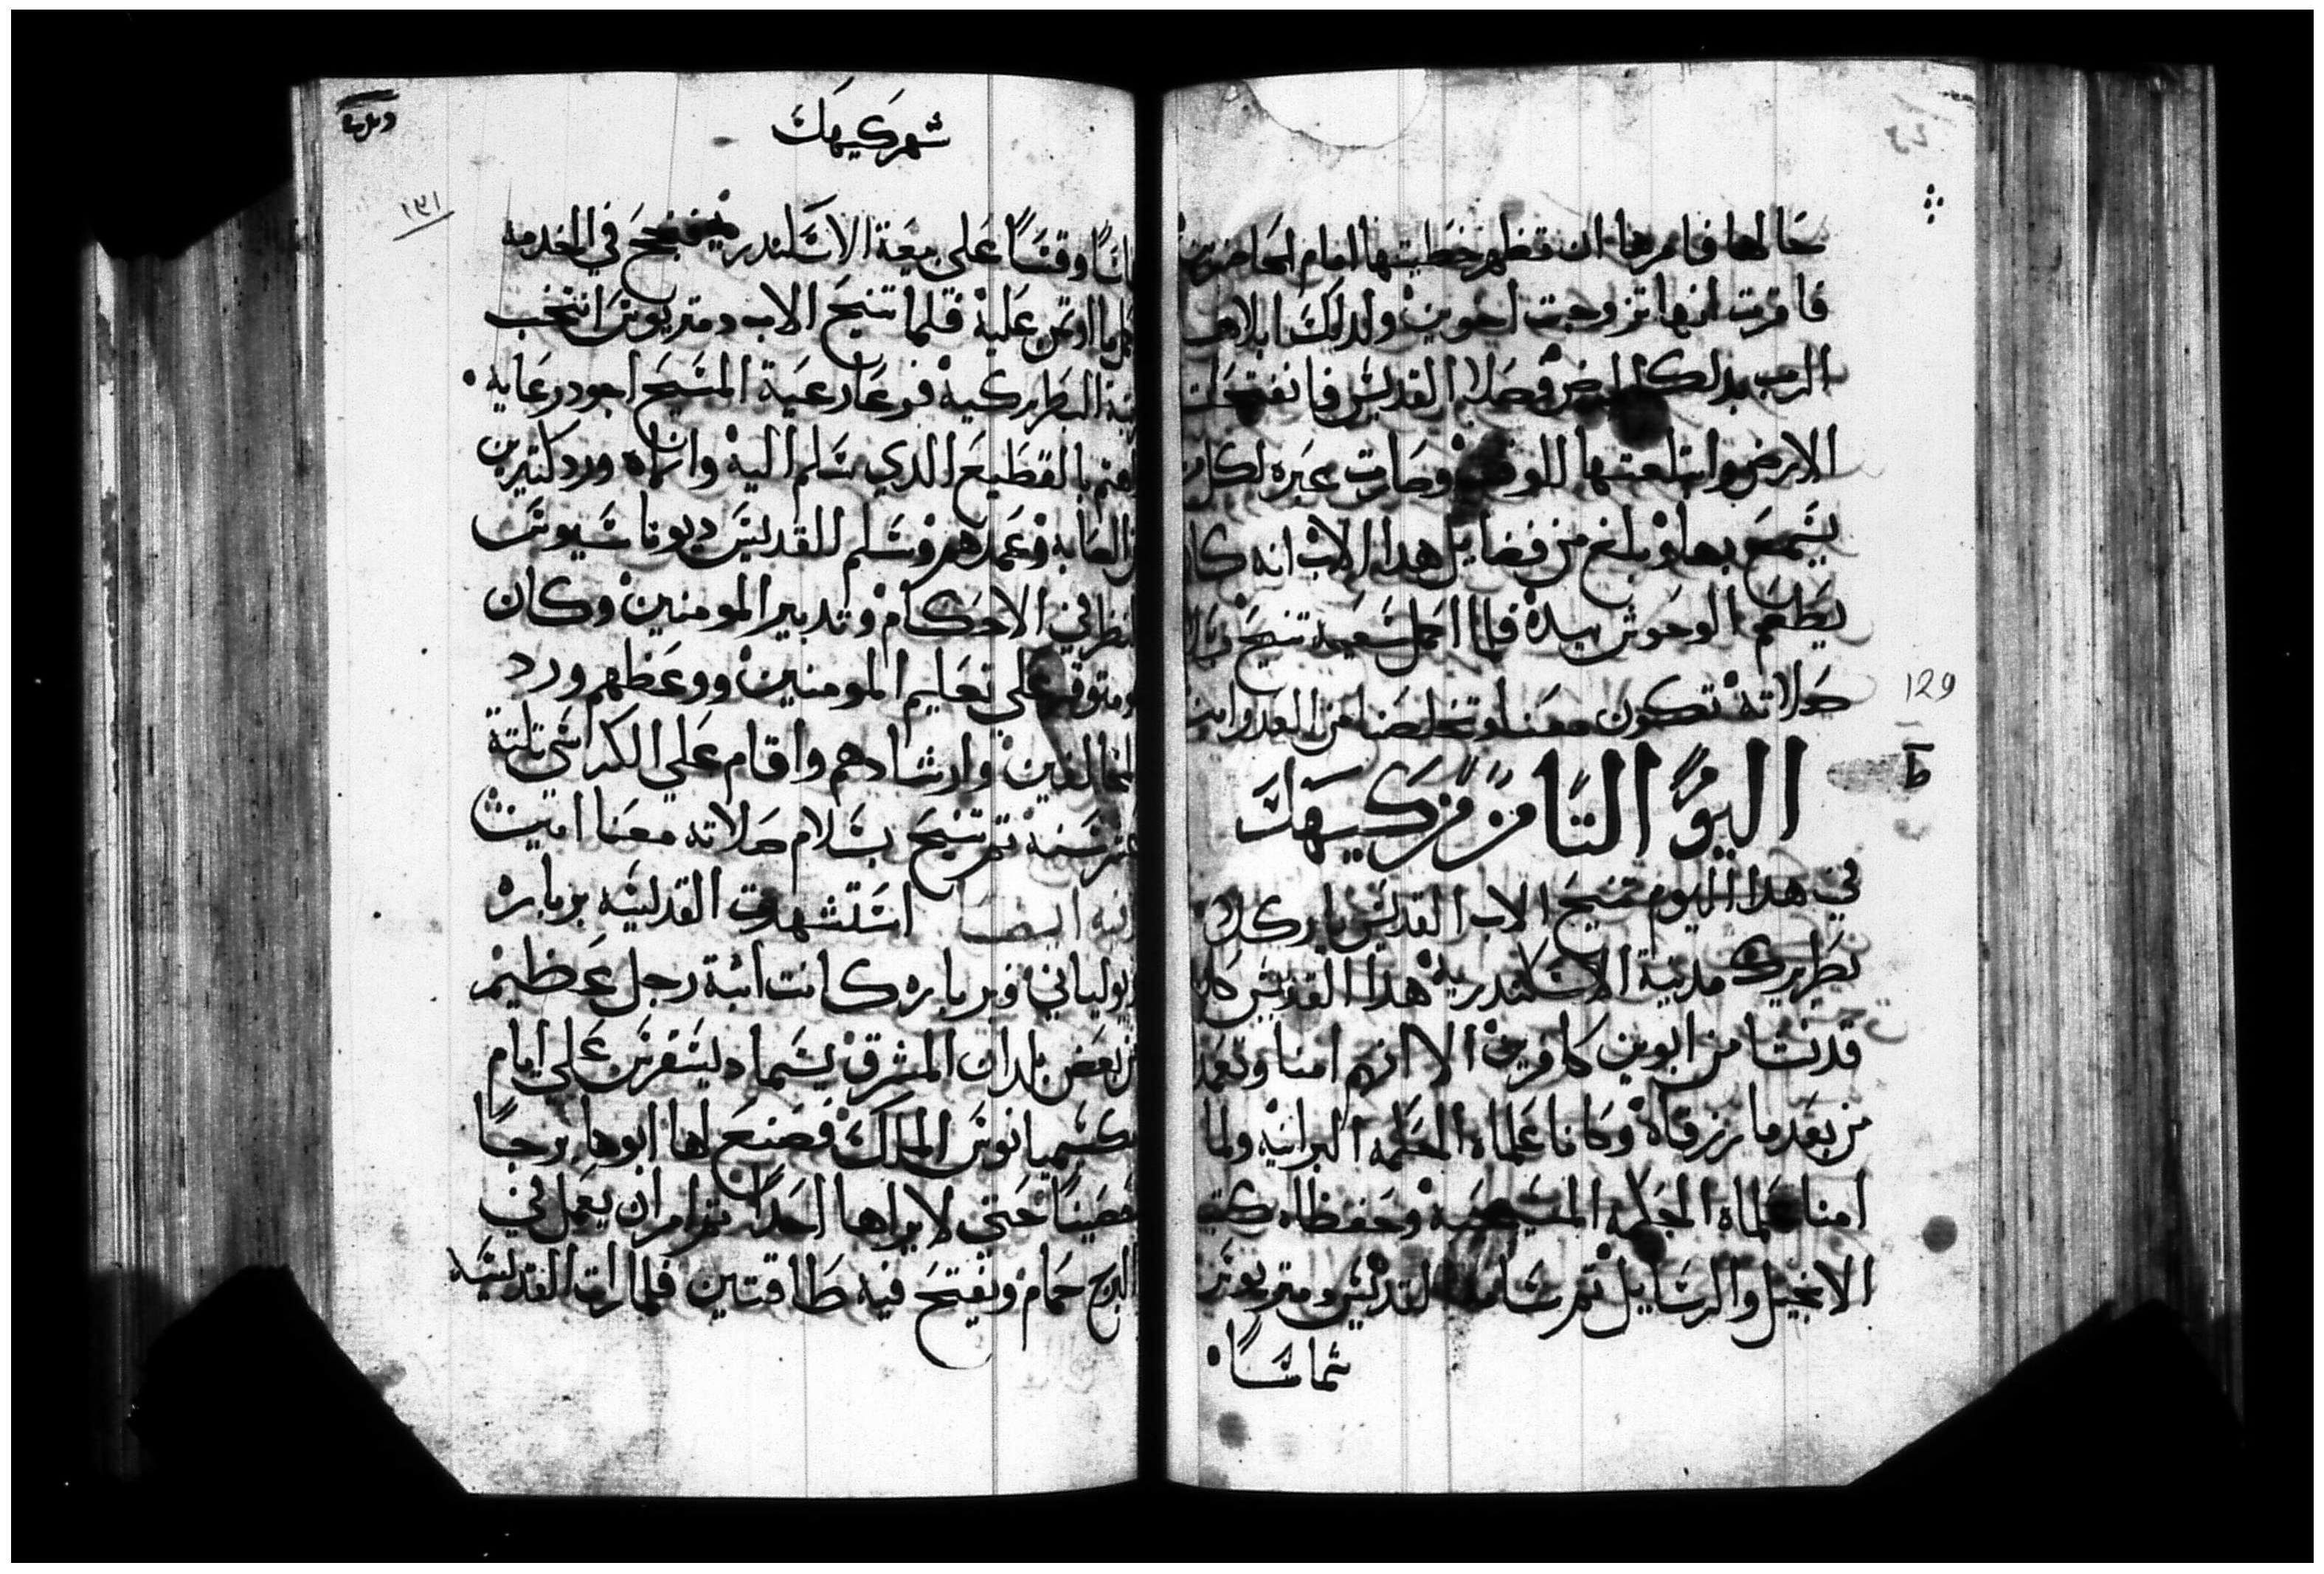 حالها فامرها ان تظهر خطيتها امام الحاضرين
فاقرت انها تزوجت اخوين ولدلك ابلاها
الرب بدلك المرض فصلا القديس فانفتحت
الارض وابتلعتها للوقت وصارت عبره لكل من
يسمع بها وبلغ من فضايل هدا الاب انه كان
يطعم الوحوش بيده فلما اكمل سعيه تنيح بسلام
صلاته تكون معنا وتخلصنا من العدو امين
129
ط
اليوم التامن من كيهك
في هدا اليوم تنيح الاب القديس ياركلا
بطريرك مدينة الاسكندرية هدا القديس كان
قد نشا من ابوين كافرين الا انهم امنا وتعمدا
من بعد ما رزقاه وكانا علماه الحكمه البرانيه ولما
امنا علماه الحكمه المسيحية وحفظاه كتب
الانجيل والرسايل تم رسامه القديس دمتريوس
شماسا
شهر كيهك
١٣١
وقسا على بيعة الاسكندرية فنجح في الخدمه
كل ما اوتمن عليه فلما تنيح الاب دمتريوس انتخب
البطريركية فرعا رعية المسيح اجود رعايه
بالقطيع الدي سلم اليه وانماه ورد كتيرين
وعمدهم وسلم للقديس ديوناسيوس
في الاحكام وتدبير المومنين وكان
علي تعليم المومنين ووعظهم ورد
المخالفين وارشادهم واقام علي الكراسي تلتة
عشر سنه تم تنيح بسلام صلاته معنا امين
وفيه ايضا استشهدت القديسه بربارة
ويولياني وبرباره كانت ابنة رجل عظيم
من بعض بلدان المشرق يسما ديسقرس علي ايام
مكسميانوس الملك فصنع لها ابوها برجا
حصينا حتي لا يراها احدا تم امر ان يعمل في
البرج حمام ونفتح فيه طاقتين فلما رات القديسه